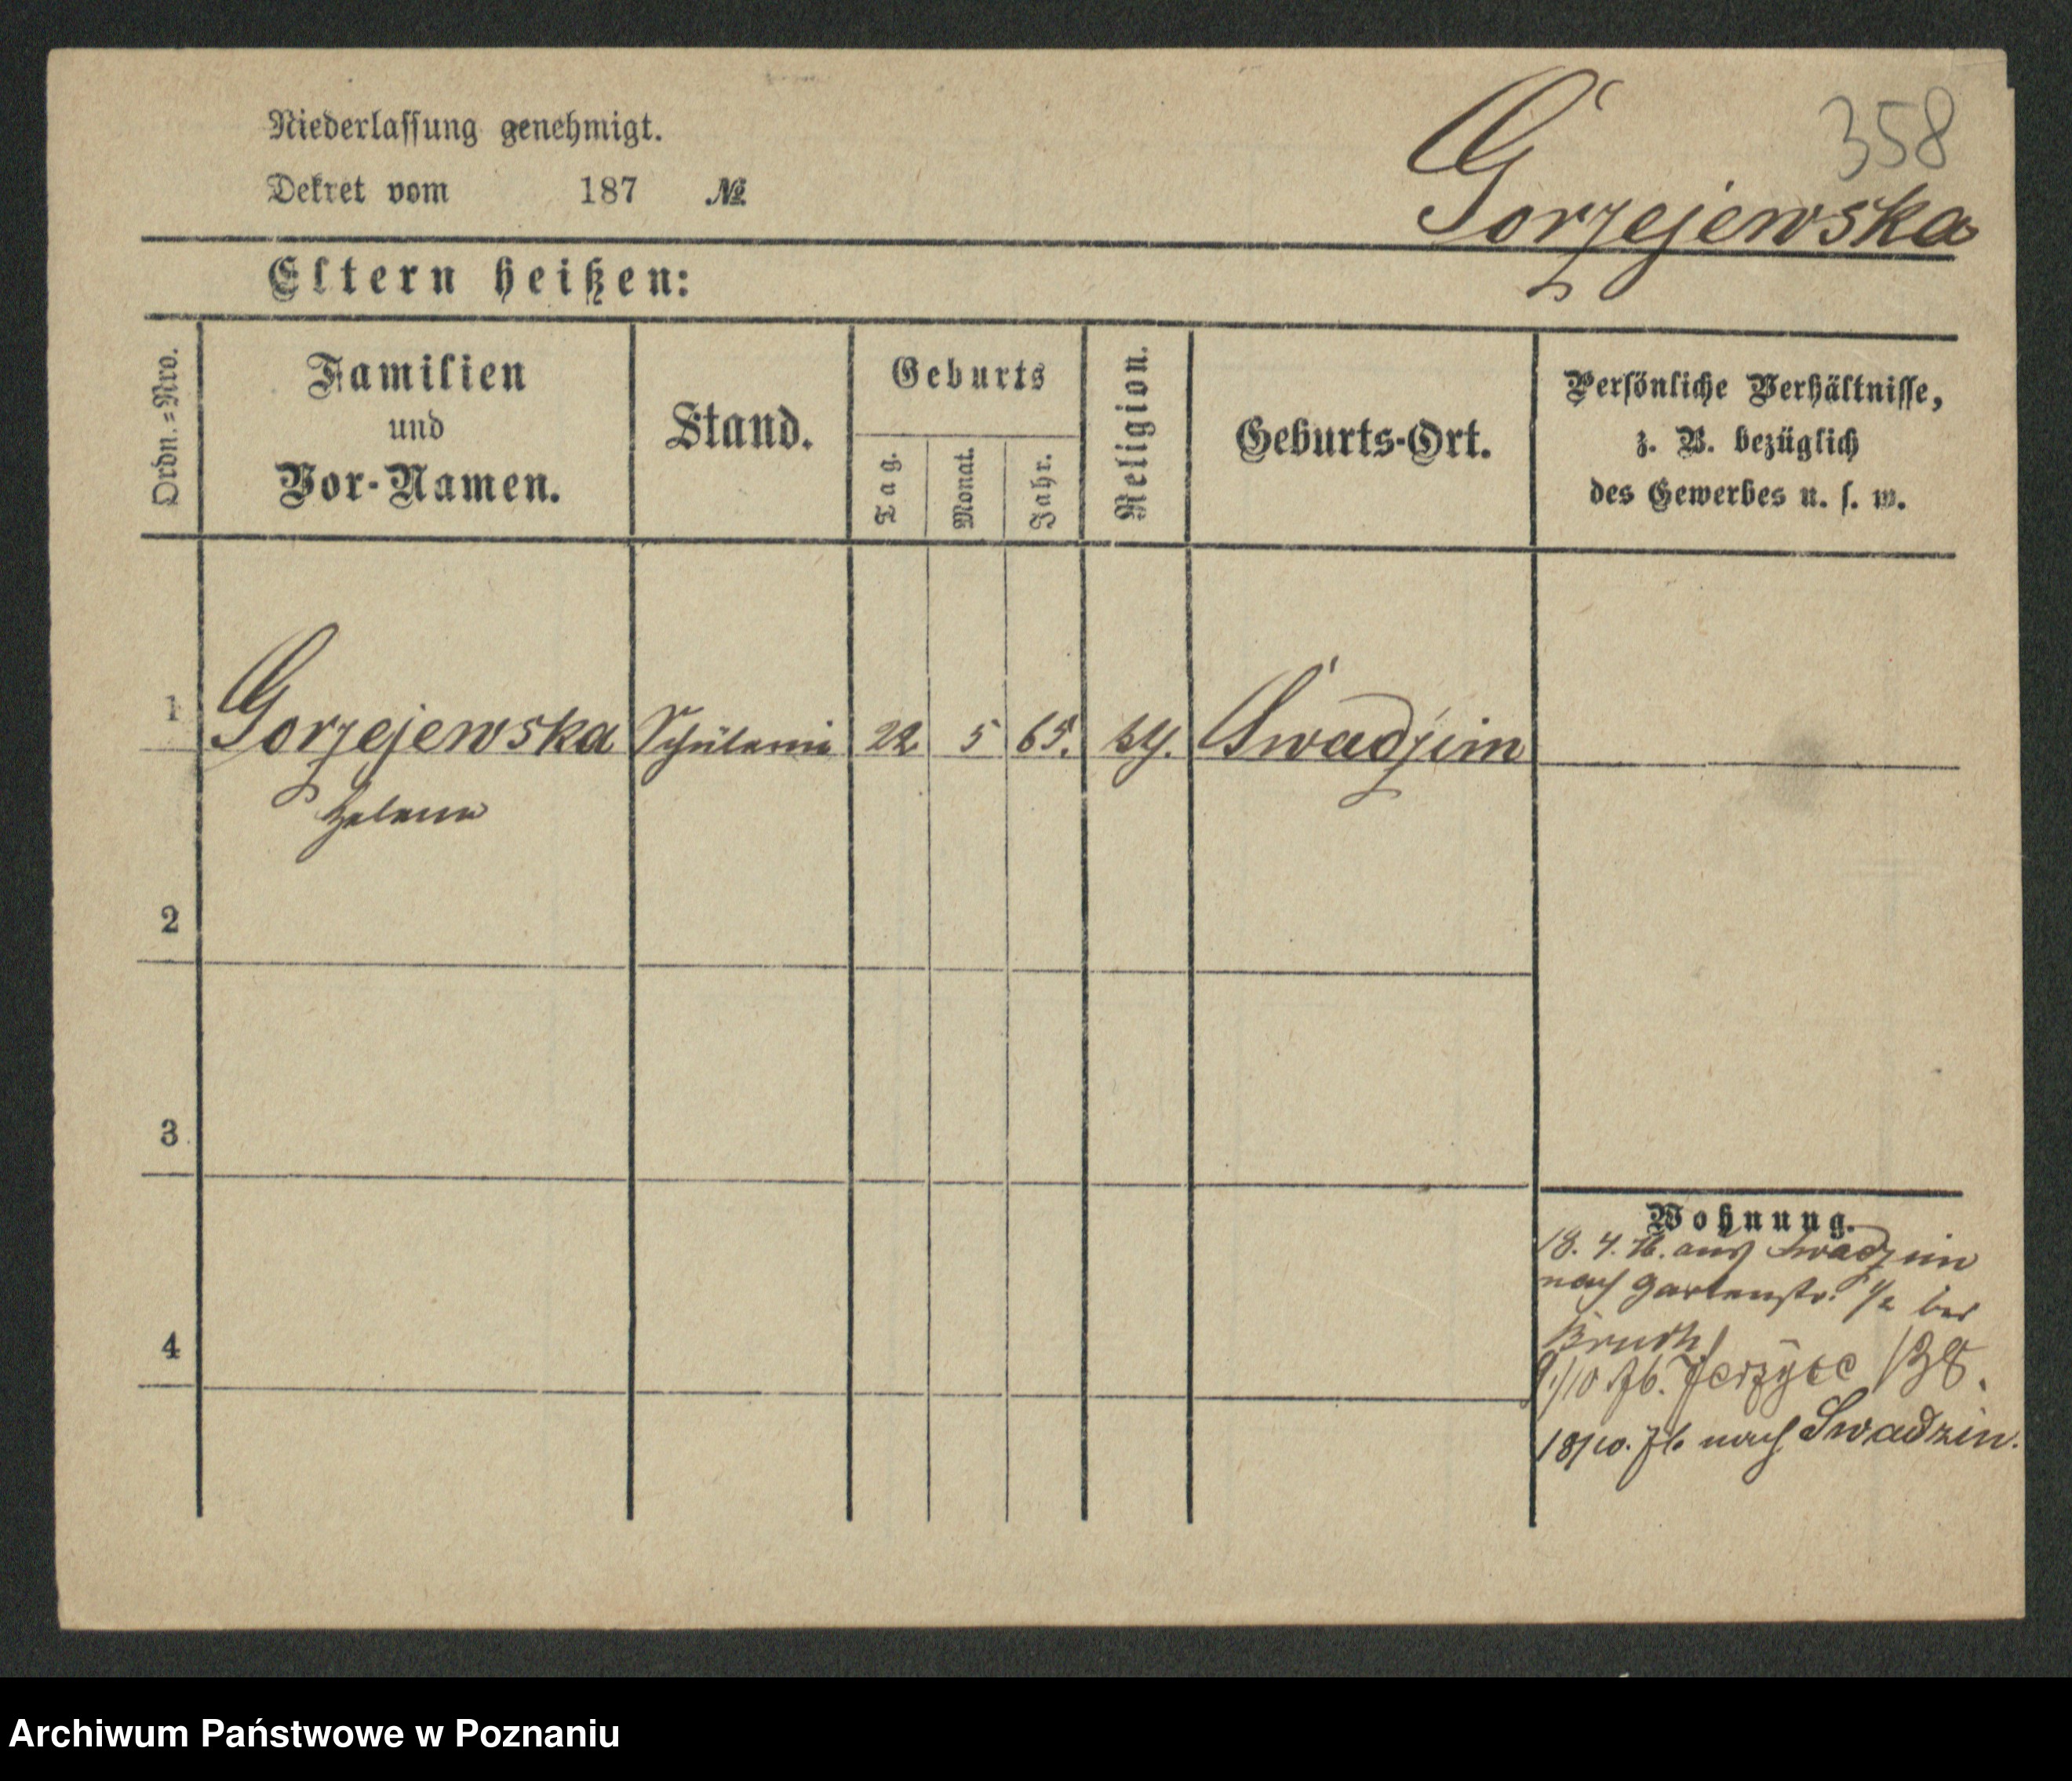 358
Niederlassung genehmigt.
Dekret vom 187 №
Gorzejewska
Eltern heißen:
Ordn.=Nro.
Familien
und
Vor-Namen.
Stand.
Geburts
Tag.
Monat.
Jahr.
Religion.
Geburts-Ort.
Persönliche Verhältnisse,
z. B. bezüglich
des Gewerbes u. s. w.
1 Gorzejewska Schülerin 22 5 65. Swadzim
Helena
2
3
4
Wohnung.
18. 4. 76. aus Swadzim
nach Gartenstr. 1/2 bei
/10 76. Jerzyce 138.
18/10. 76 nach Swadzin.
Archiwum Państwowe w Poznaniu